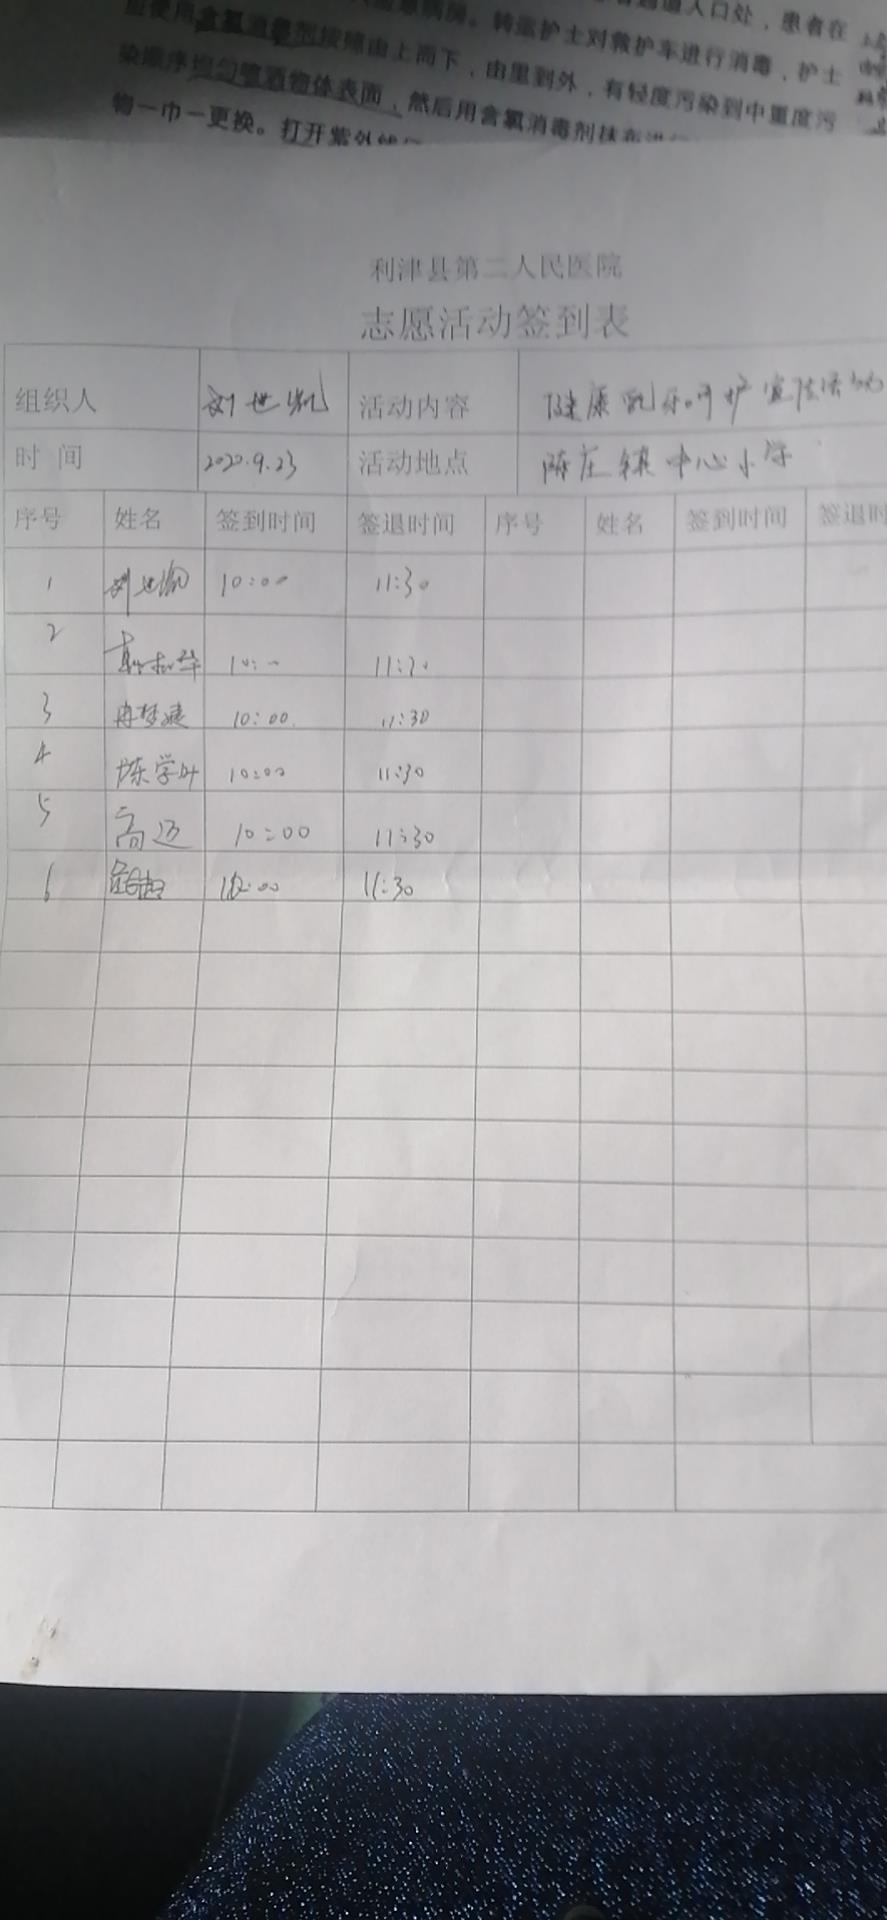 人口处，患者在
应使用含氯消毒剂按照由上而下，由里到外，有轻度污染到中重度污
病房。转运护士对救护车进行消毒，护士
染顺序均匀喷洒物体表面，然后用含氯消毒剂
物一巾一更换。打开紫外线
利津县第二人民医院
志愿活动签到表
组织人 刘世凯 活动内容 健康 护 宣传活动
时 间 2020.9.23 活动地点 陈庄镇中心小学
序号 姓名 签到时间 签退时间 序号 姓名 签到时间 签退时
1 10:00 11:30
2 10:00 11:30
3 10:00 11:30
4 陈学叶 10:00 11:30
5 高迈 10:00 11:30
6 10:00 11:30